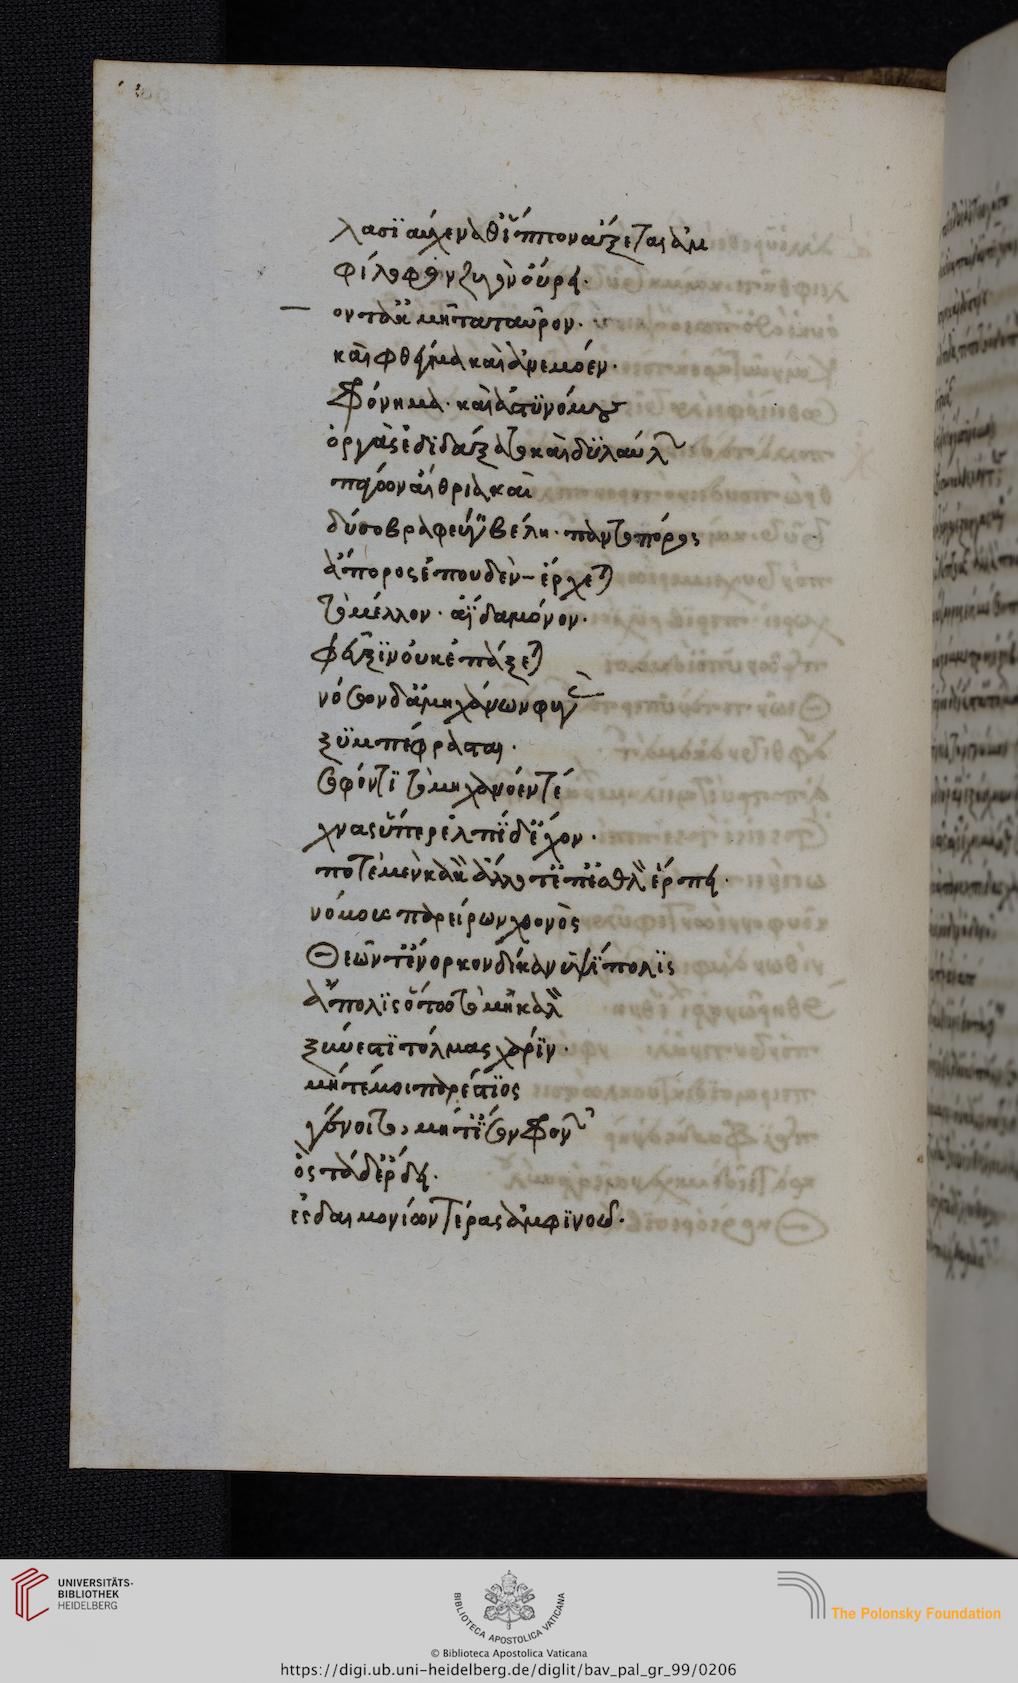 λασϊαύχενάθ' ἵππον ἄξεται ἀμ
φίλοφον ζυγὸν οὔρει·
οντ' ἀκμῆτα ταῦρον·
καὶ φθέγμα καὶ ἀνεμόεν·
φρόνημα· καὶ ἀστϋνόμους
ὀργὰς ἐδιδάξατο καὶ δϋσαύλων
πάγων αἴθρια καὶ
δύσομβρα φεύγειν βέλη· παντοπόρος
ἄπορος ἐπ' οὐδὲν ἔρχεται
τὸ μέλλον· ἀΐδα μόνον·
φεῦξϊν οὐκ ἐπάξεται
νόσων δ' ἀμηχάνων φυγὰς
ξϋμπέφραται·
σοφόν τϊ τὸ μηχανόεν τέ
χνας ὑπὲρ ἐλπίδ' ἔχων·
ποτὲ μὲν κακὸν ἄλλοτ' ἐπ' ἐσθλὸν ἕρπει·
νόμους παρείρων χθονὸς
Θεῶν τ' ἔνορκον δίκαν ὑψίπολϊς
ἄπολϊς ὅτωι τὸ μὴ καλὸν
ξύνεστϊ τόλμας χάρϊν·
μήτέ μοι παρέστϊος
γένοιτο, μήτ' ἴσον φρονῶν
ὃς τάδ' ἔρδει·
ἐς δαιμόνιον τέρας ἀμφϊνοῶ·
UNIVERSITÄTS-
BIBLIOTHEK
HEIDELBERG
BIBLIOTECA APOSTOLICA VATICANA
The Polonsky Foundation
© Biblioteca Apostolica Vaticana
https://digi.ub.uni-heidelberg.de/diglit/bav_pal_gr_99/0206